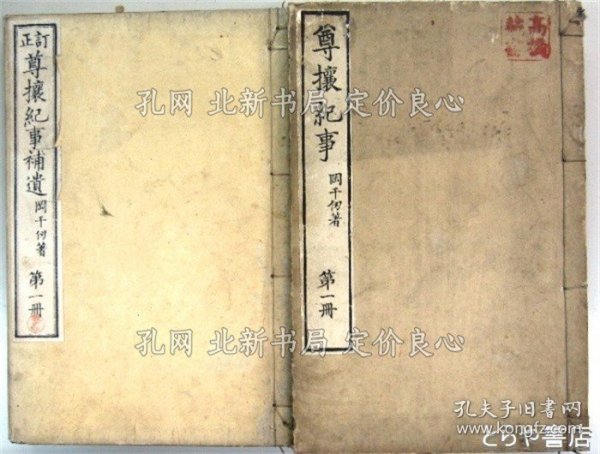 訂正 尊攘紀事補遺 岡千仞著 第一冊
尊攘紀事 岡千仞著 第一冊
孔网 北新书局 定价良心
孔网 北新书局 定价良心
孔夫子旧书网
www.kongfz.com
とらや書店